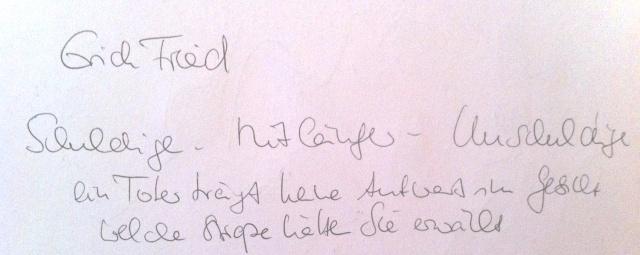 Erich Fried
Schuldige - Mitläufer - Unschuldige
ein Toter trägt keine Antwort im Gesicht
welche Strophe hätte Sie erwählt